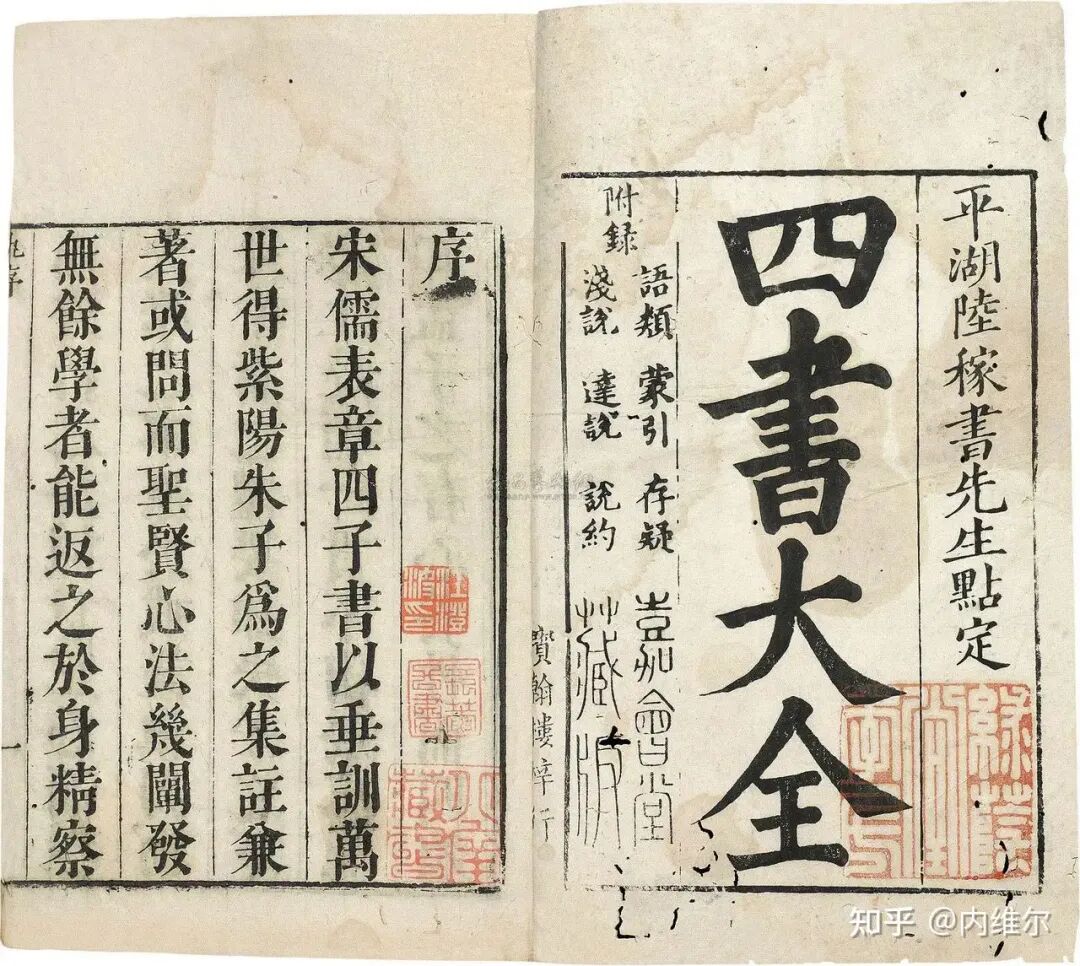 平湖陸稼書先生點定
四書大全
附録
語類 蒙引 存疑
淺說 達說 說約
嘉會堂
藏板
寶翰樓梓行
序
宋儒表章四子書以垂訓萬
世得紫陽朱子爲之集註兼
著或問而聖賢心法幾闡發
無餘學者能返之於身精察
一
知乎 @内维尔